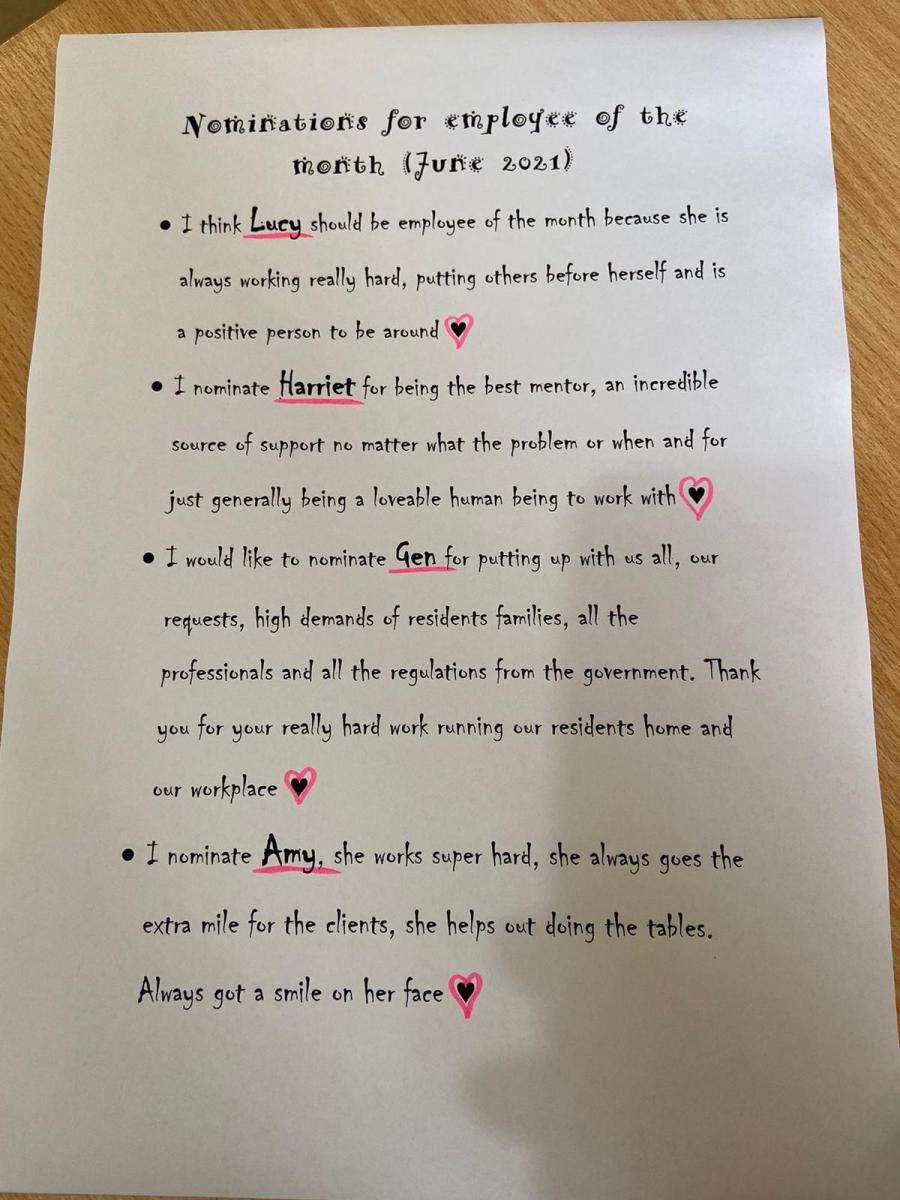 Nominations for employee of the
month (June 2021)
• I think Lucy should be employee of the month because she is
always working really hard, putting others before herself and is
a positive person to be around ♥
• I nominate Harriet for being the best mentor, an incredible
source of support no matter what the problem or when and for
just generally being a loveable human being to work with ♥
• I would like to nominate Gen for putting up with us all, our
requests, high demands of residents families, all the
professionals and all the regulations from the government. Thank
you for your really hard work running our residents home and
our workplace ♥
• I nominate Amy, she works super hard, she always goes the
extra mile for the clients, she helps out doing the tables.
Always got a smile on her face ♥